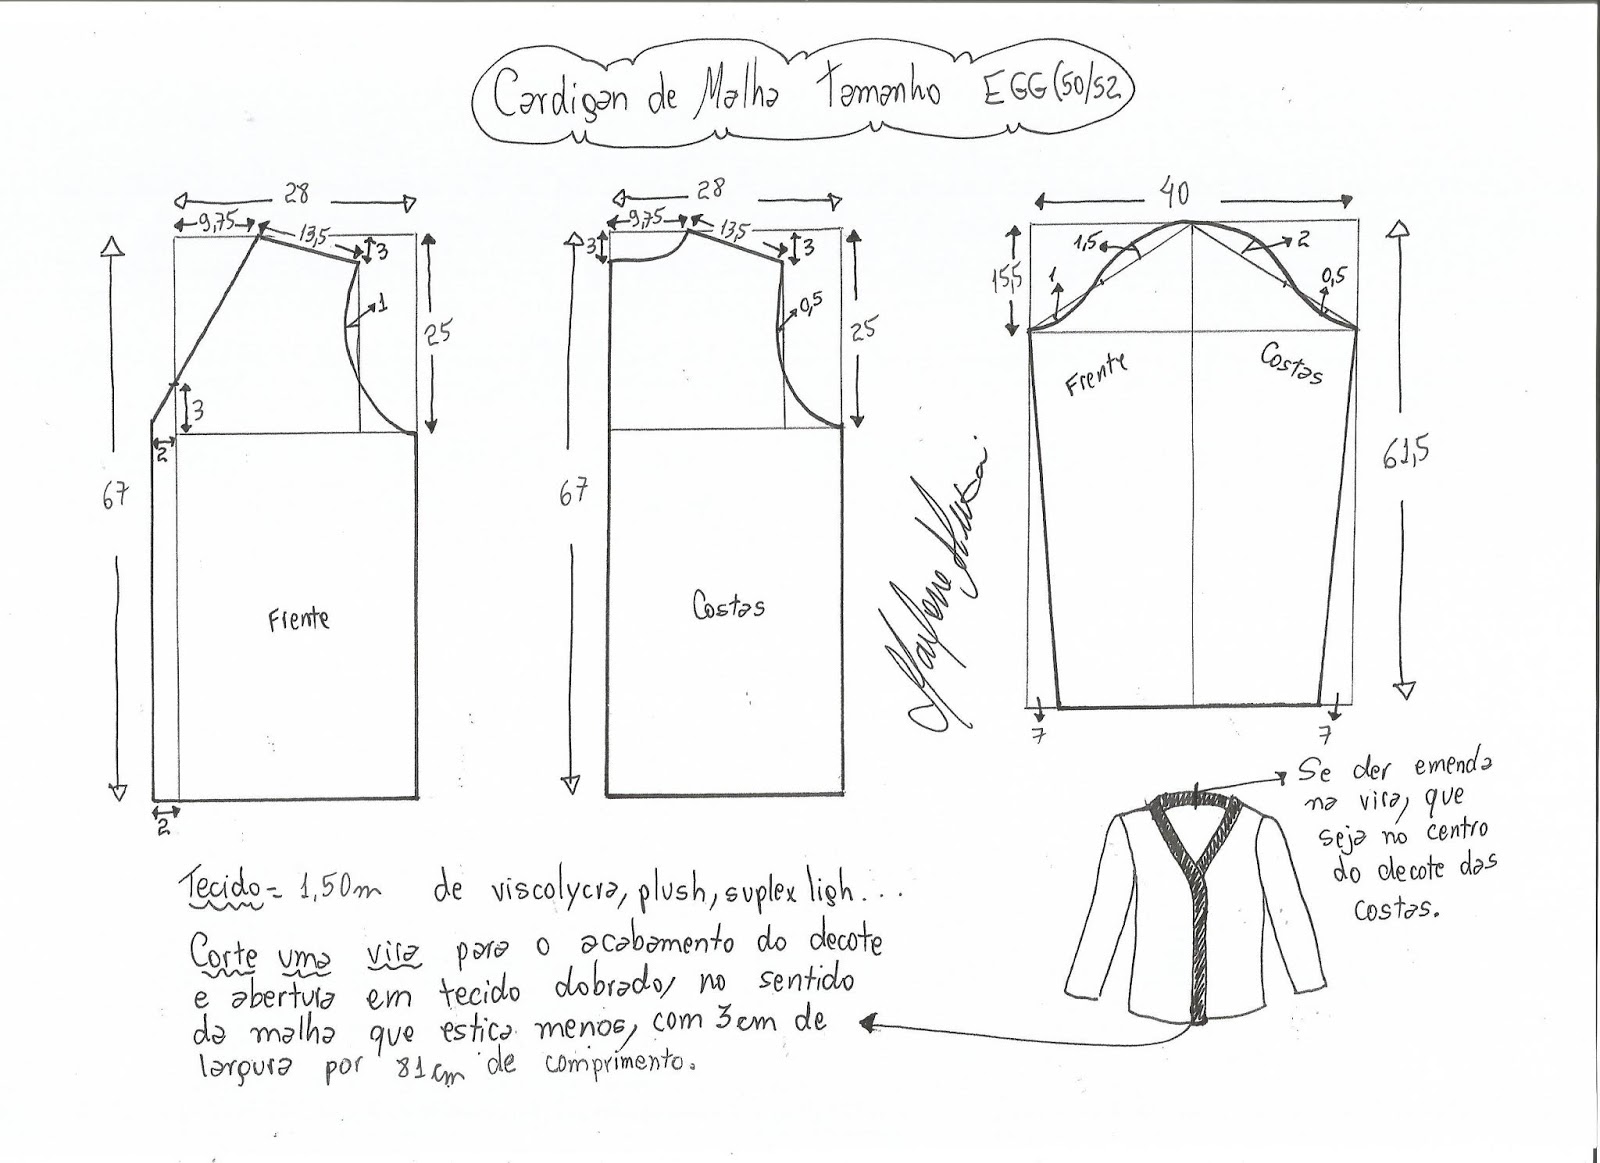 Cardigan de Malha Tamanho EGG(50/52
28
9,75
13,5
3
1
25
3
2
67
Frente
2
28
9,75
13,5
3
3
0,5
25
67
Costas
40
15,5
1,5
2
1
0,5
Frente
Costas
61,5
7
7
Se der emenda
na vira, que
seja no centro
do decote das
costas.
Tecido = 1,50m de viscolycra, plush, suplex ligh...
Corte uma vira para o acabamento do decote
e abertura em tecido dobrado, no sentido
da malha que estica menos, com 3cm de
largura por 81cm de comprimento.